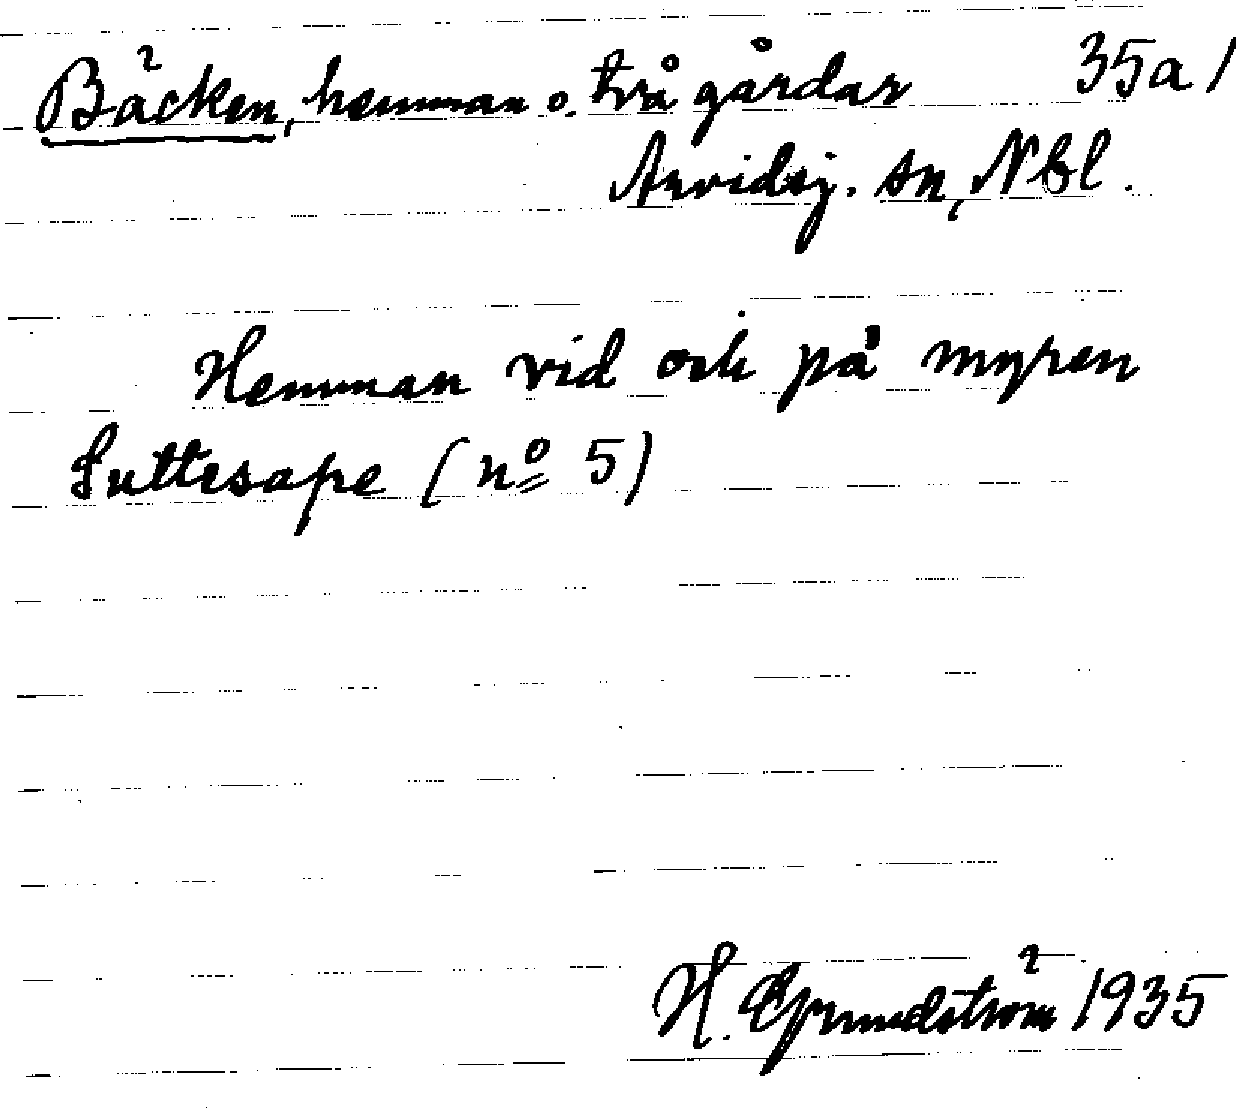 Bäcken, hemman o. två gårdar 35a/
Arvidsj. sn, Nbl.
Hemman vid och på myren
Suttesape (nº 5)
H. Grundström 1935